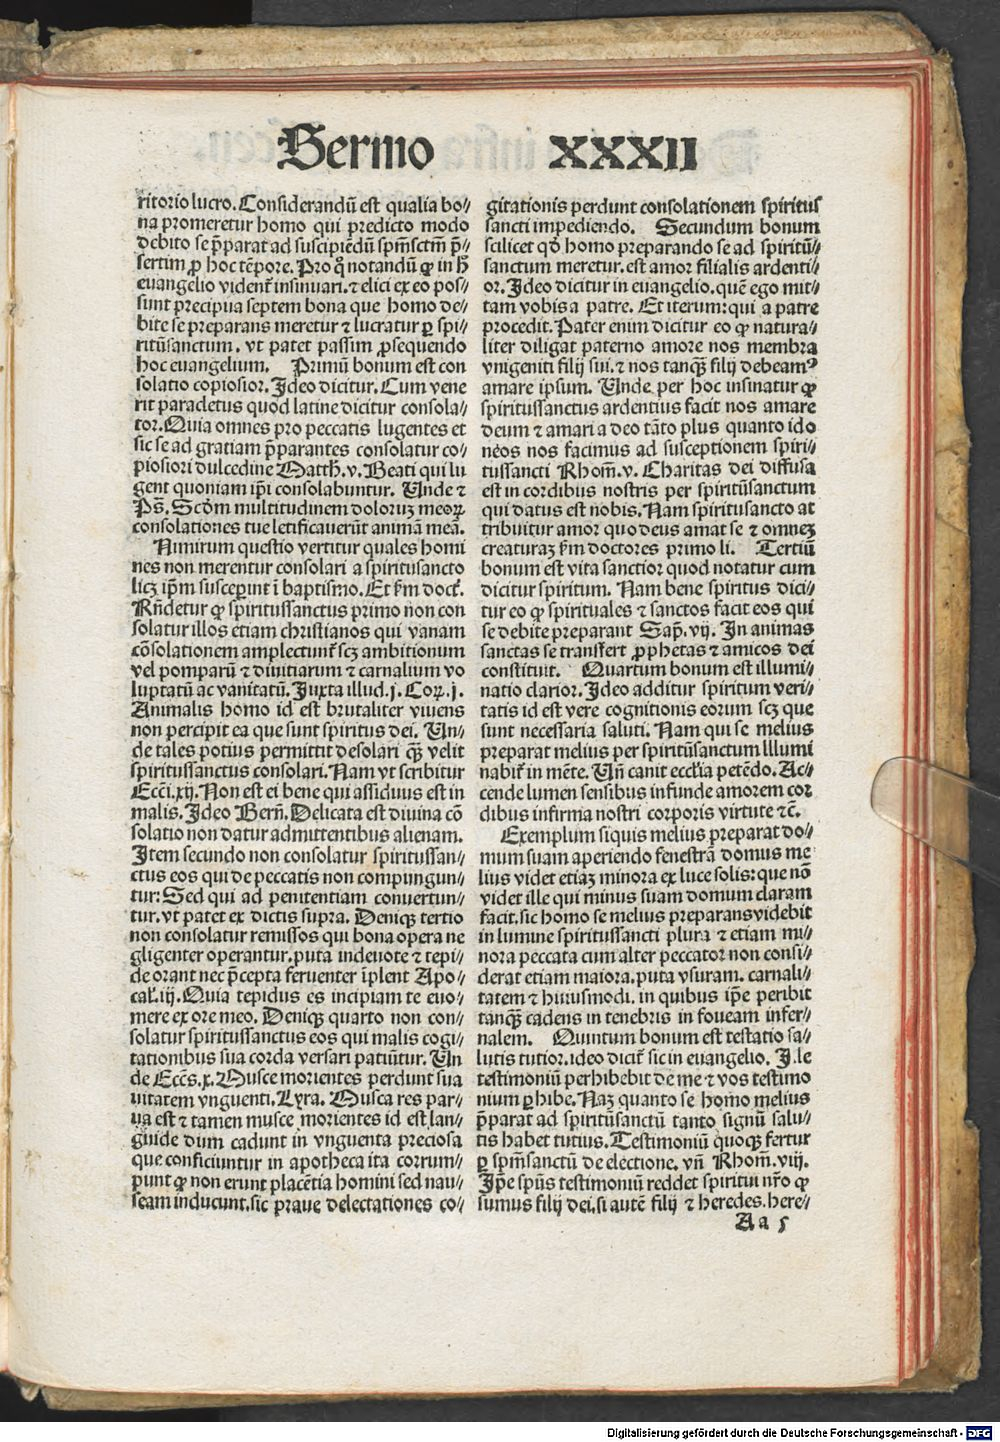 Sermo XXXII
ritorio lucro. Considerandū est qualia bo⸗
na promeretur homo qui predicto modo
debito se p̄parat ad suscipiēdū spm̄sctm̄ p̄⸗
sertim ꝓ hoc tēpore. Pro q̊ notandū ꝙ in h̊
euangelio vident᷑ insinuari. ⁊ elici ex eo pos⸗
sunt precipua septem bona que homo de⸗
bite se preparans meretur ⁊ lucratur ꝑ spi⸗
ritūsanctum. vt patet passim ꝓsequendo
hoc euangelium. Primū bonum est con
solatio copiosior. Ideo dicitur. Cum vene
rit paracletus quod latine dicitur consola⸗
tor. Quia omnes pro peccatis lugentes et
sic se ad gratiam p̄parantes consolatur co⸗
piosiori dulcedine Matth. v. Beati qui lu
gent quoniam ip̄i consolabuntur. Unde ⁊
Ps̄. Scd̄m multitudinem doloruz meoꝝ
consolationes tue letificauerūt animā meā.
Nimirum questio vertitur quales homi
nes non merentur consolari a spiritusancto
licꝫ ip̄m susceꝑunt ī baptismo. Et ẜm doct.
Rn̄detur ꝙ spiritussanctus primo non con
solatur illos etiam christianos qui vanam
cōsolationem amplectunt᷑ scꝫ ambitionum
vel pomparū ⁊ diuitiarum ⁊ carnalium vo
luptatū ac vanitatū. Iuxta illud. j. Coꝝ. j.
Animalis homo id est brutaliter viuens
non percipit ea que sunt spiritus dei. Un⸗
de tales potius permittit desolari qꝫ̄ velit
spiritussanctus consolari. Nam vt scribitur
Ecci. xij. Non est ei bene qui assiduus est in
malis. Ideo Bern̄. Delicata est diuina cō
solatio non datur admittentibus alienam.
Item secundo non consolatur spiritussan⸗
ctus eos qui de peccatis non compungun⸗
tur: Sed qui ad penitentiam conuertun⸗
tur. vt patet ex dictis supra. Deniqꝫ tertio
non consolatur remissos qui bona opera ne
gligenter operantur. puta indeuote ⁊ tepi⸗
de orant nec p̄cepta feruenter īplent Apo⸗
cal. iij. Quia tepidus es incipiam te euo⸗
mere ex ore meo. Deniqꝫ quarto non con⸗
solatur spiritussanctus eos qui malis cogi⸗
tationibus sua corda versari patiūtur. Un
de Ecc̄s. x. Musce morientes perdunt sua
uitatem vnguenti. Lyra. Musca res par⸗
ua est ⁊ tamen musce morientes id est lan⸗
guide dum cadunt in vnguenta preciosa
que conficiuntur in apotheca ita corrum⸗
punt ꝙ non erunt placētia homini sed nau⸗
seam inducunt. sic praue delectationes co⸗
gitationis perdunt consolationem spiritus
sancti impediendo. Secundum bonum
scilicet qd̓ homo preparando se ad spiritū⸗
sanctum meretur. est amor filialis ardenti⸗
or. Ideo dicitur in euangelio. quē ego mit⸗
tam vobis a patre. Et iterum: qui a patre
procedit. Pater enim dicitur eo ꝙ natura⸗
liter diligat paterno amore nos membra
vnigeniti filij sui. ⁊ nos tanqꝫ̄ filij debeamꝰ
amare ipsum. Unde per hoc insinatur ꝙ
spiritussanctus ardentius facit nos amare
deum ⁊ amari a deo tāto plus quanto ido
neos nos facimus ad susceptionem spiri⸗
tussancti Rhom̄. v. Charitas dei diffusa
est in cordibus nostris per spiritūsanctum
qui datus est nobis. Nam spiritusancto at
tribuitur amor quo deus amat se ⁊ omnez
creaturaz ẜm doctores primo li. Tertiū
bonum est vita sanctior quod notatur cum
dicitur spiritum. Nam bene spiritus dici⸗
tur eo ꝙ spirituales ⁊ sanctos facit eos qui
se debite preparant Sap̄. vij. In animas
sanctas se transfert ꝓphetas ⁊ amicos dei
constituit. Quartum bonum est illumi⸗
natio clarior. Ideo additur spiritum veri⸗
tatis id est vere cognitionis eorum scꝫ que
sunt necessaria saluti. Nam qui se melius
preparat melius per spiritūsanctum lllumi
nabit᷑ in mēte. Un̄ canit eccl̓ia petēdo. Ac⸗
cende lumen sensibus infunde amorem cor
dibus infirma nostri corporis virtute ⁊c̄.
Exemplum siquis melius preparat do⸗
mum suam aperiendo fenestrā domus me
lius videt etiaz minora ex luce solis: que nō
videt ille qui minus suam domum claram
facit. sic homo se melius preparans videbit
in lumine spiritussancti plura ⁊ etiam mi⸗
nora peccata cum alter peccator non consi⸗
derat etiam maiora. puta vsuram. carnali⸗
tatem ⁊ huiusmodi. in quibus ip̄e peribit
tanqꝫ̄ cadens in tenebris in foueam infer⸗
nalem. Quintum bonum est testatio sa⸗
lutis tutior. ideo dicit᷑ sic in euangelio. I.le
testimoniū perhibebit de me ⁊ vos testimo
nium ꝑhibe. Naz quanto se homo melius
p̄parat ad spiritūsanctū tanto signū salu⸗
tis habet tutius. Testimoniū quoqꝫ fertur
ꝑ spm̄sanctū de electione. vn̄ Rhom̄. viij.
Ip̄e spūs testimoniū reddet spiritui nr̄o ꝙ
sumus filij dei. si autē filij ⁊ heredes. here⸗
A a 5
Digitalisierung gefördert durch die Deutsche Forschungsgemeinschaft - DFG